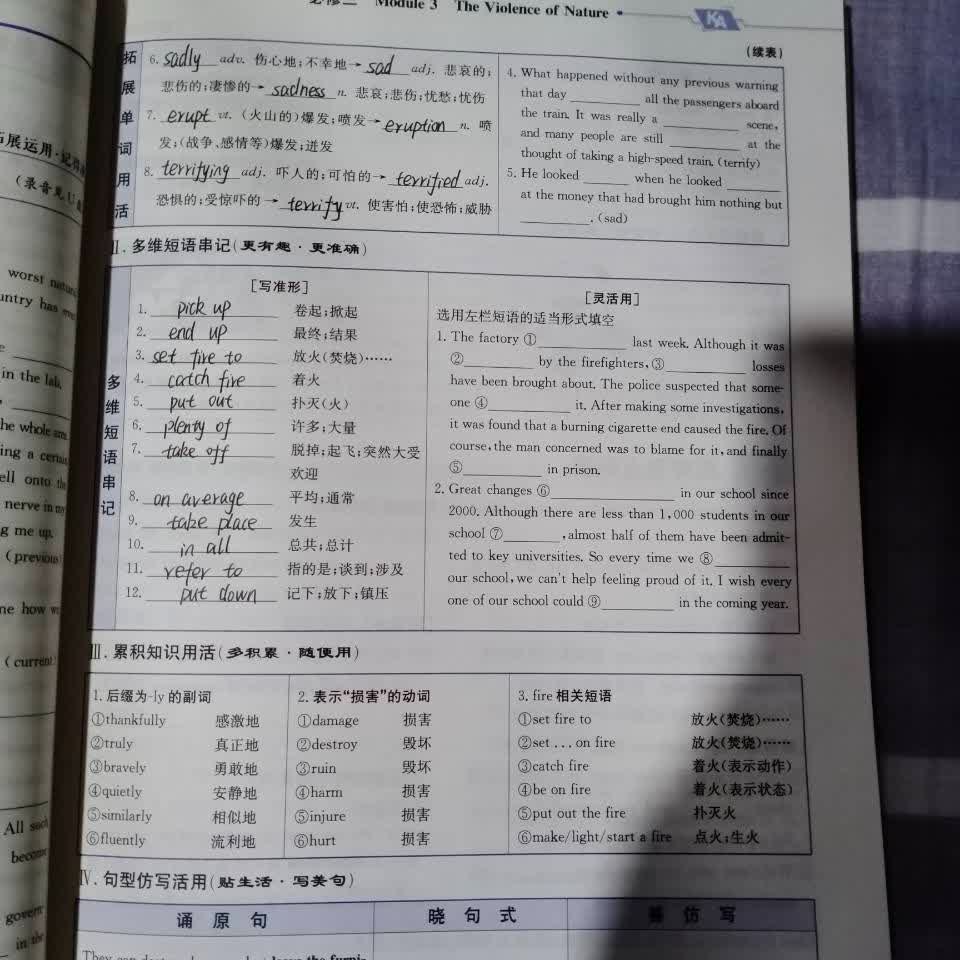 Module 3 The Violence of Nature
KA
(续表)
拓展单词用活
6. sadly adv. 伤心地;不幸地→ sad adj. 悲哀的;
悲伤的;凄惨的→ sadness n. 悲哀;悲伤;忧愁;忧伤
7. erupt vt. (火山的)爆发;喷发→ eruption n. 喷
发;(战争、感情等)爆发;迸发
8. terrifying adj. 吓人的;可怕的→ terrified adj.
恐惧的;受惊吓的→ terrify vt. 使害怕;使恐怖;威胁
4. What happened without any previous warning
that day ________ all the passengers aboard
the train. It was really a ________ scene,
and many people are still ________ at the
thought of taking a high-speed train. (terrify)
5. He looked ________ when he looked ________
at the money that had brought him nothing but
________. (sad)
Ⅱ. 多维短语串记(更有趣·更准确)
多维短语串记
[写准形]
1. pick up 卷起;掀起
2. end up 最终;结果
3. set fire to 放火(焚烧)……
4. catch fire 着火
5. put out 扑灭(火)
6. plenty of 许多;大量
7. take off 脱掉;起飞;突然大受
欢迎
8. on average 平均;通常
9. take place 发生
10. in all 总共;总计
11. refer to 指的是;谈到;涉及
12. put down 记下;放下;镇压
[灵活用]
选用左栏短语的适当形式填空
1. The factory ①________ last week. Although it was
②________ by the firefighters, ③________ losses
have been brought about. The police suspected that some-
one ④________ it. After making some investigations,
it was found that a burning cigarette end caused the fire. Of
course, the man concerned was to blame for it, and finally
⑤________ in prison.
2. Great changes ⑥________ in our school since
2000. Although there are less than 1,000 students in our
school ⑦________, almost half of them have been admit-
ted to key universities. So every time we ⑧________
our school, we can't help feeling proud of it. I wish every
one of our school could ⑨________ in the coming year.
Ⅲ. 累积知识用活(多积累·随便用)
1. 后缀为-ly 的副词
①thankfully 感激地
②truly 真正地
③bravely 勇敢地
④quietly 安静地
⑤similarly 相似地
⑥fluently 流利地
2. 表示“损害”的动词
①damage 损害
②destroy 毁坏
③ruin 毁坏
④harm 损害
⑤injure 损害
⑥hurt 损害
3. fire 相关短语
①set fire to 放火(焚烧)……
②set ... on fire 放火(焚烧)……
③catch fire 着火(表示动作)
④be on fire 着火(表示状态)
⑤put out the fire 扑灭火
⑥make/light/start a fire 点火;生火
Ⅳ. 句型仿写活用(贴生活·写美句)
诵原句 晓句式 善仿写
展运用·记
(录音见
worst
untry has
in the lab.
he whole
ing a certain
ell onto the
nerve in my
g me up.
(previous
me how
(current)
All such
become
govern
in the